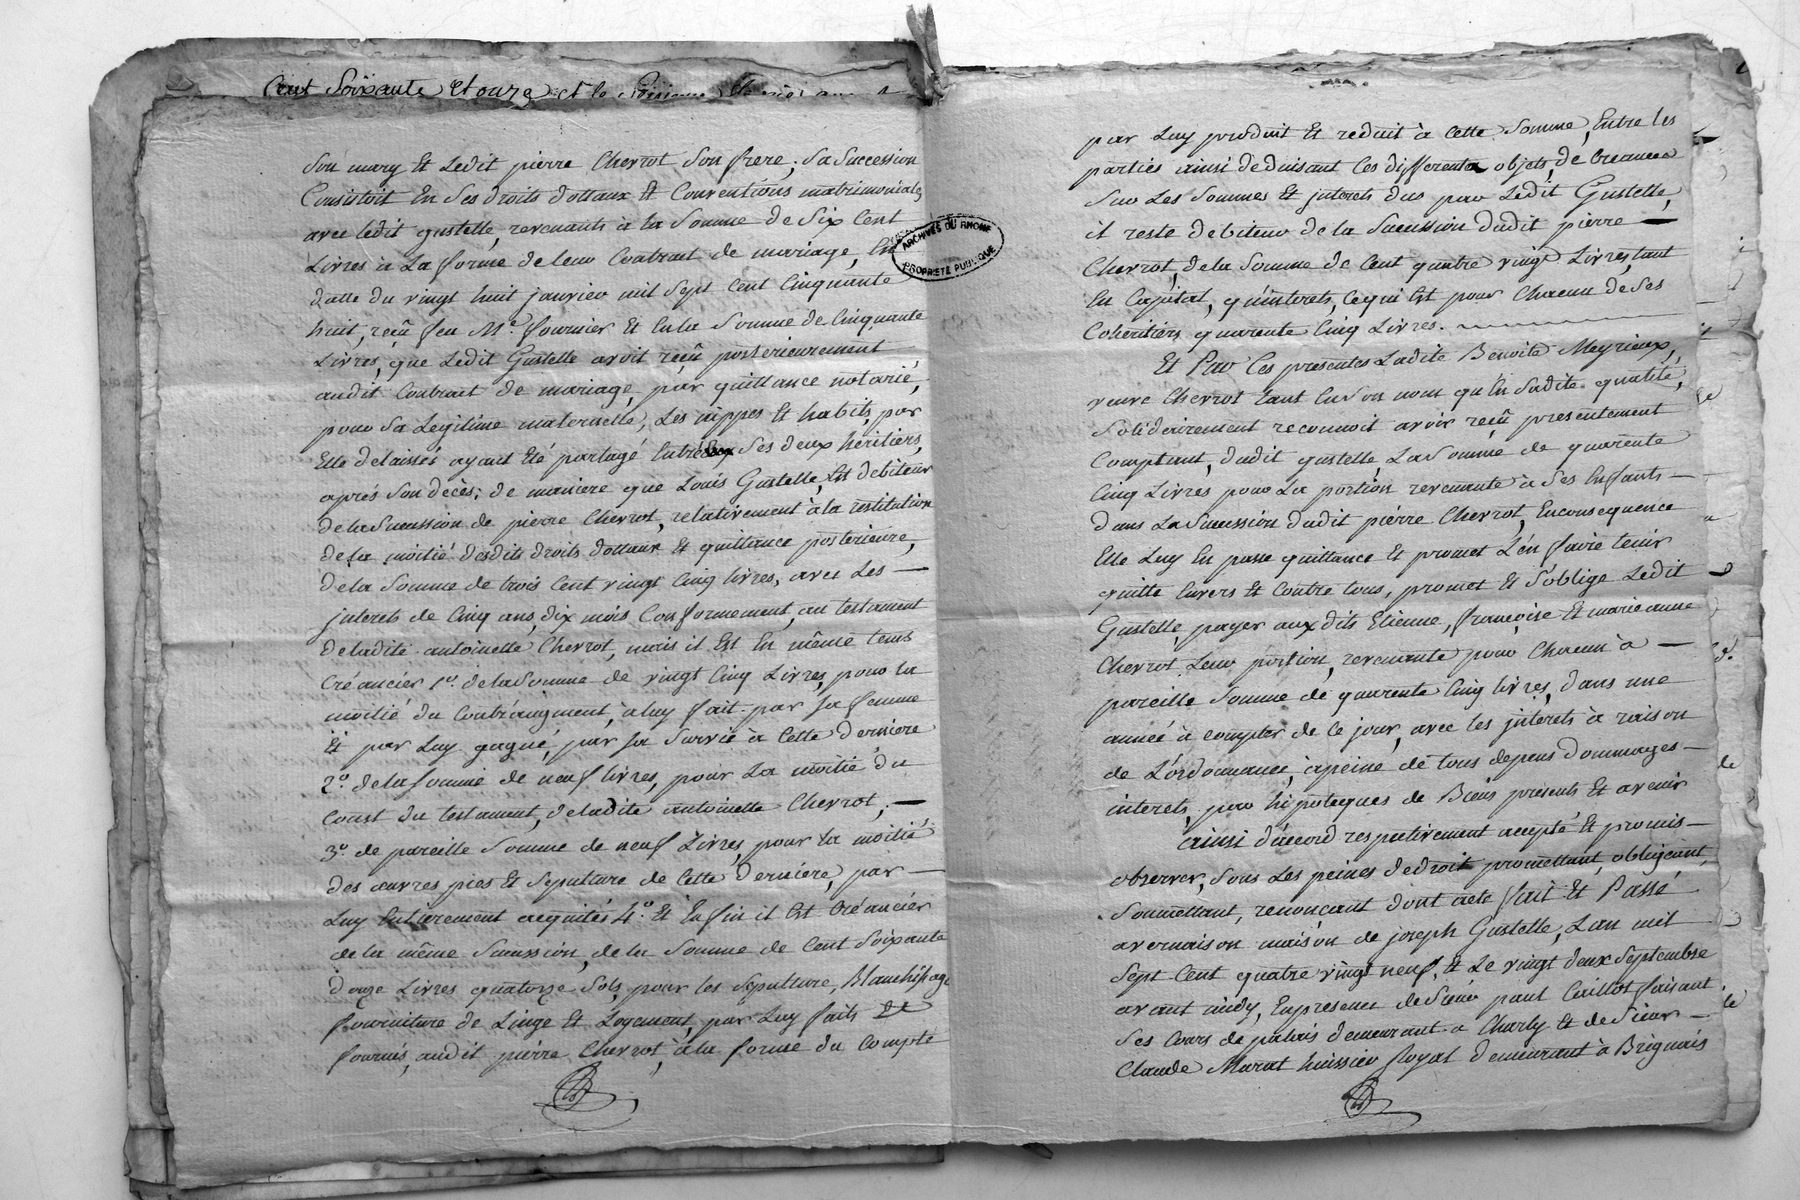 Cent Soixante Et onze et le
Son mary Et Ledit pierre Chevrot Son frere; Sa Succession
Consistoit En Ses droits dottaux Et Conventions matrimoniales
avec ledit gustelle, revenants à la Somme de Six Cent
Livres à La forme de leur Contrat de mariage, En
datte du vingt huit janvier mil Sept Cent Cinquante
huit, reçû feu Me. fournier Et En la Somme de Cinquante
Livres, que Ledit Gustelle avoit reçû posterieurement
audit Contrat de mariage, par quittance notarié,
pour Sa Legitime maternelle, Les nippes Et habits, par
Elle delaissés ayant Eté partagé Entre Ses deux héritiers,
aprés Son decès; de maniere que Louis Gustelle, Est debiteur
de la Succession de pierre Chevrot, relativement à la restitution
de la moitié desdits droits dottaux Et quittance posterieure,
de la Somme de trois Cent vingt Cinq livres, avec Les —
jnterets de Cinq ans, dix mois Conformement, au testament
de ladite antoinette Chevrot, mais il Est En même tems
Créancier 1°. de la Somme de vingt Cinq Livres, pour la
moitié du Contr'augment, a luy fait par Sa femme
Et par Luy gagné, par Sa Survie à Cette derniere
2°. de la Somme de neuf livres, pour La moitié du
Coust du testament, de ladite antoinette Chevrot, —
3°. de pareille Somme de neuf Livres, pour la moitié
des œuvres pies Et Sepulture de Cette derniere, par —
Luy Entierement acquités 4°. Et Enfin il Est Créancier
de la même Succession, de la Somme de Cent Soixante
douze Livres quatorze Sols, pour les Sepulture, Blanchissage
fourniture de Linge Et Logement, par Luy faits Et
fournis, audit pierre Chevrot, à la forme du Compte
ARCHIVES DU RHONE
PROPRIÉTÉ PUBLIQUE
par Luy produit Et reduit à Cette Somme, Entre les
parties ainsi deduisant Ces differents objets, de Creances
Sur Les Sommes Et jnterets dus par Ledit Gustelle,
il reste debiteur de la Succession dudit pierre —
Chevrot, de la Somme de Cent quatre vingt Livres, tant
En Capital, qu'interets, Ce qui Est pour Chacun de Ses
Coheritiers quarante Cinq Livres.
Et Par Ces presentes Ladite Benoite Meyrieux,
veuve Chevrot tant En Son nom qu'En Sadite qualité,
Solidairement reconnoit avoir reçû presentement
Comptant, dudit gustelle, La Somme de quarante
Cinq Livres pour La portion revenante à Ses Enfants —
dans La Succession dudit pierre Chevrot, En consequence
Elle Luy En passe quittance Et promet L'en faire tenir
quitte Envers Et Contre tous, promet Et S'oblige Ledit
Gustelle, payer aux dits Etienne, françoise Et marie anne
Chevrot Leur portion, revenante pour Chacun à —
pareille Somme de quarente Cinq livres, dans une
année à compter de Ce jour, avec les jnterets à raison
de L'ordonnance, à peine de tous depens dommages —
interets, par hipoteques de Biens presents Et avenir
ainsi d'accord respectivement accepté Et promis —
observer, Sous Les peines de droit promettant, obligeant,
Soumettant, renonçant dont acte fait Et Passé
a vernaison maison de joseph Gustelle, L'an mil
Sept Cent quatre vingt neuf, Et Le vingt deux Septembre
avant midy, En presence de Sieur paul Caillot faisant
Ses Cours de palais demeurant a Charly Et de Sieur —
Claude Marat huissier Royal demeurant à Brignais